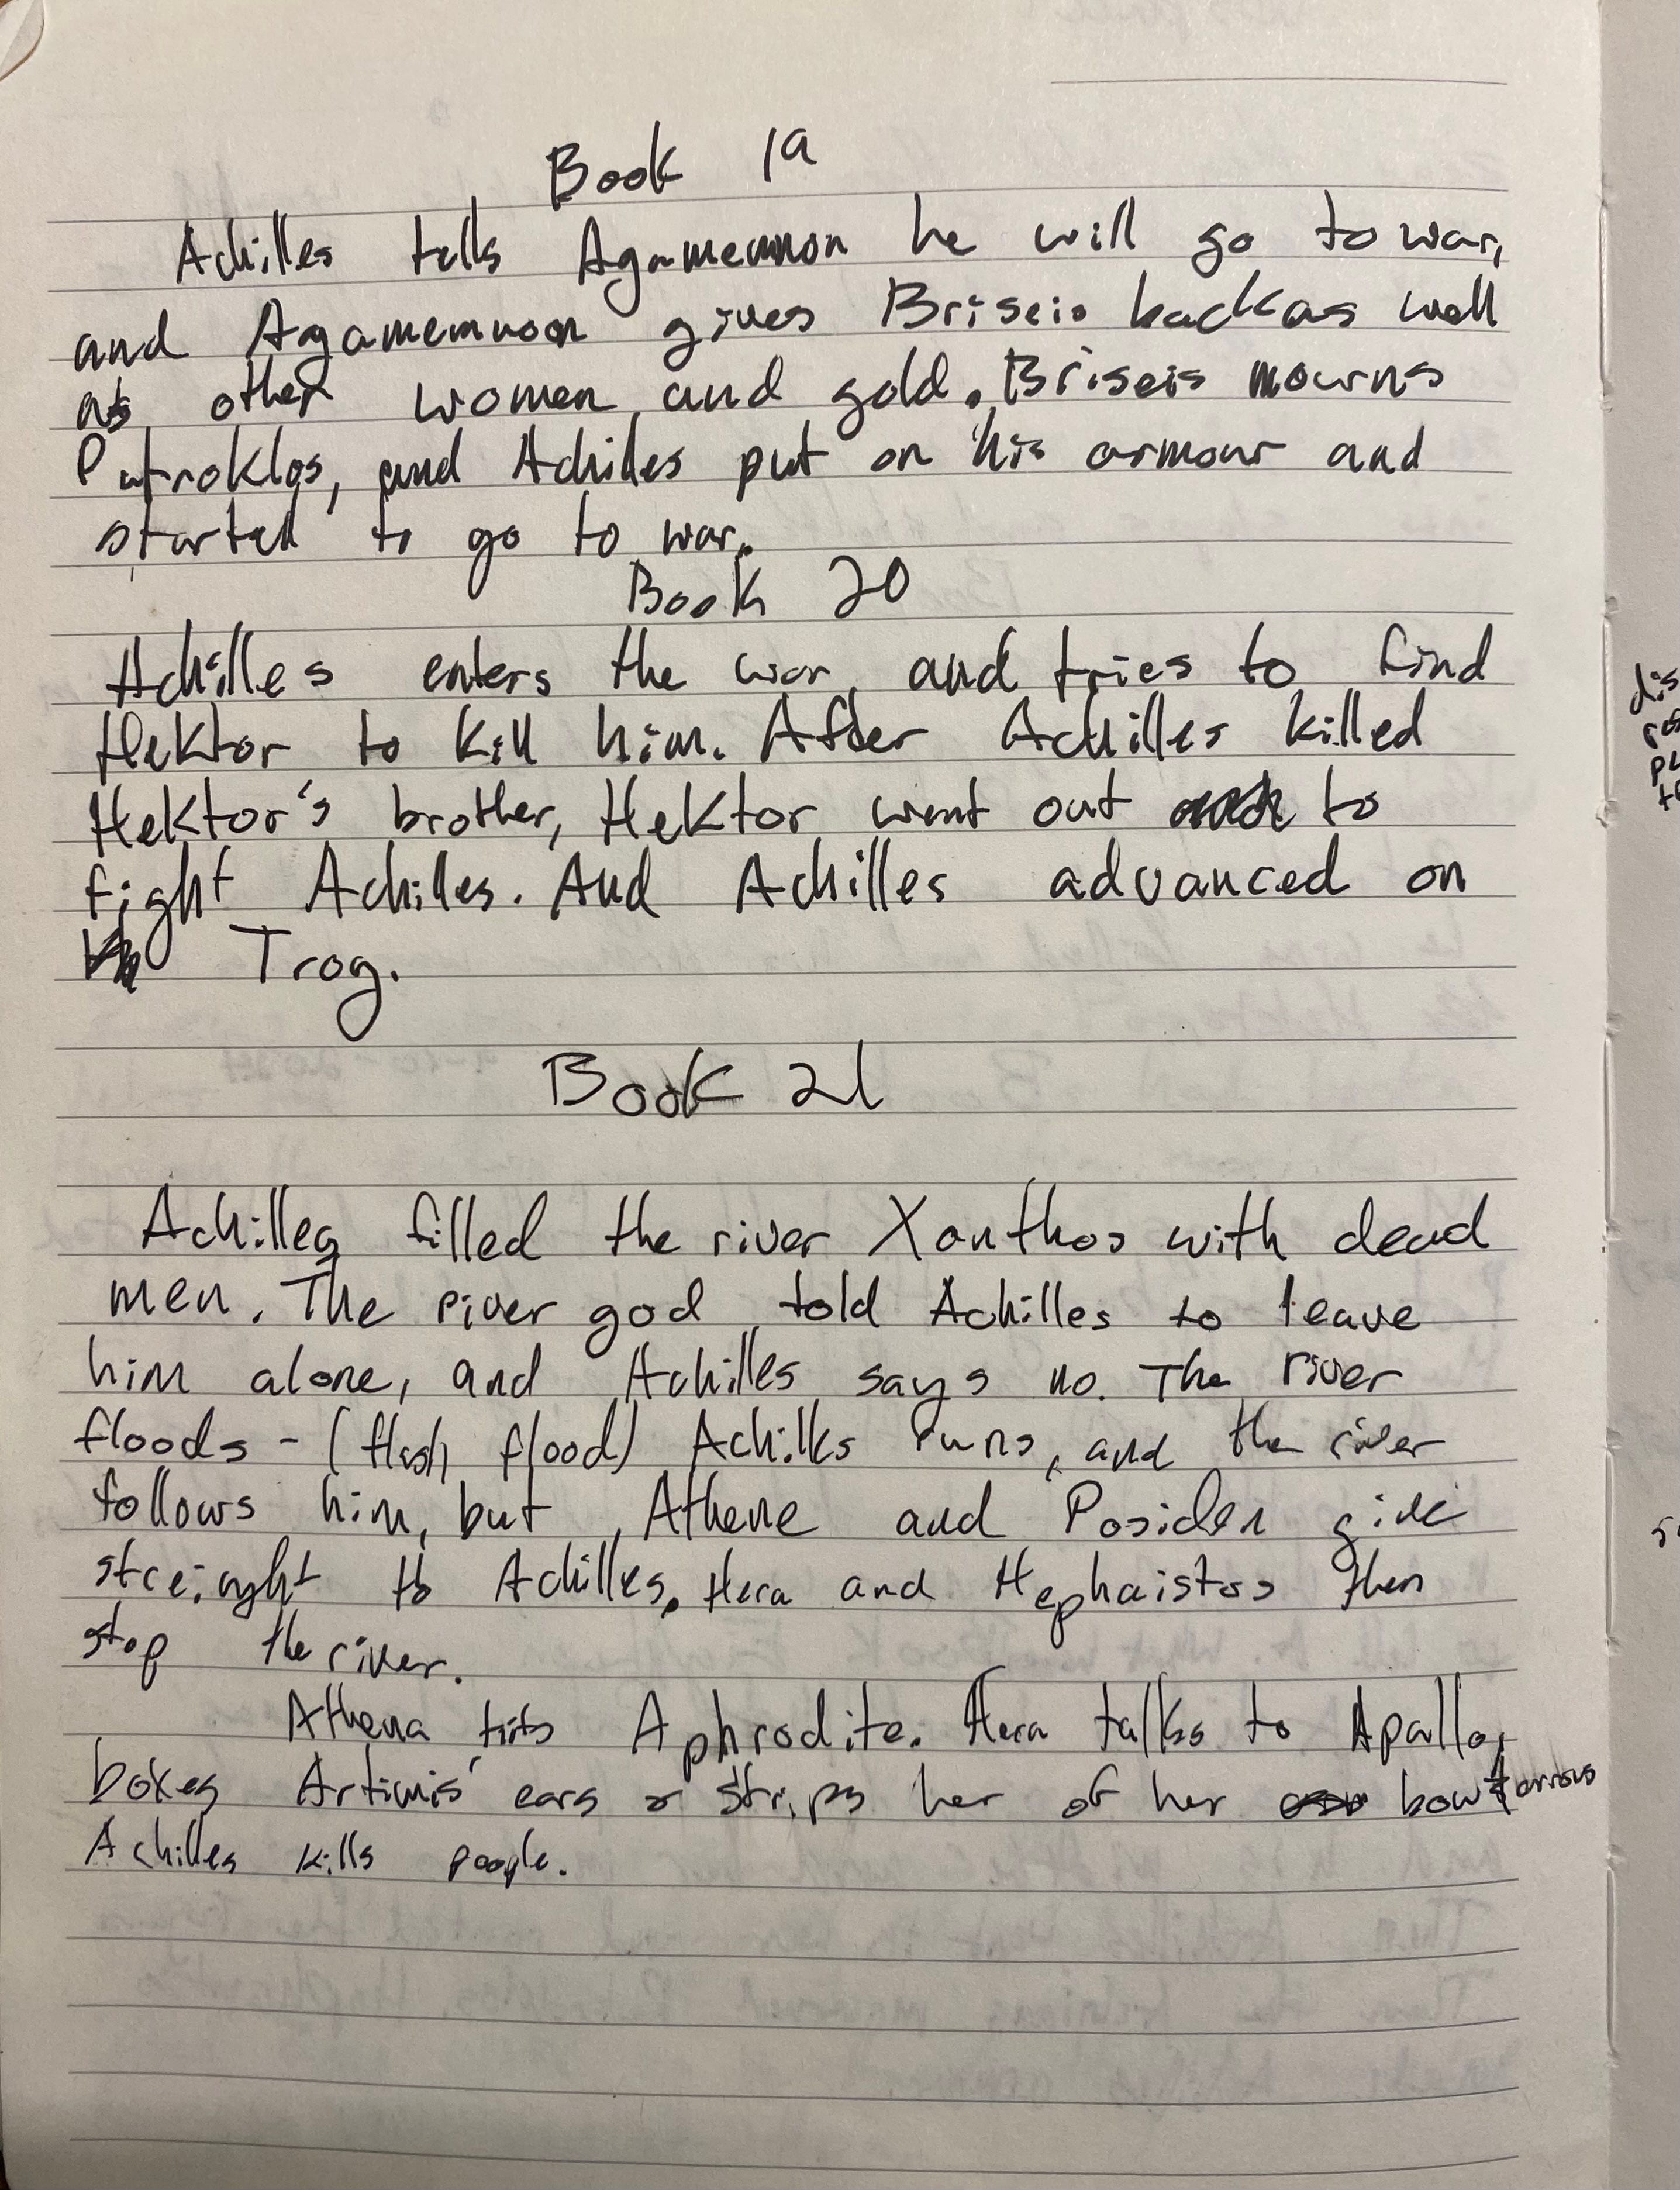 Book 19
Achilles tells Agamemnon he will go to war,
and Agamemnon gives Briseis back as well
as other women and gold. Briseis mourns
Patroklos, and Achilles put on his armour and
started to go to war.
Book 20
Achilles enters the war and tries to find
Hektor to kill him. After Achilles killed
Hektor's brother, Hektor went out to
fight Achilles. And Achilles advanced on
Troy.
Book 21
Achilles filled the river Xanthos with dead
men. The river god told Achilles to leave
him alone, and Achilles says no. The river
floods - (flash flood) Achilles runs, and the river
follows him, but Athene and Posiden give
streinght to Achilles. Hera and Hephaistos then
stop the river.
Athena hits Aphrodite. Hera talks to Apollo,
boxes Artimis' ears & strips her of her bow & arrows
Achilles kills people.